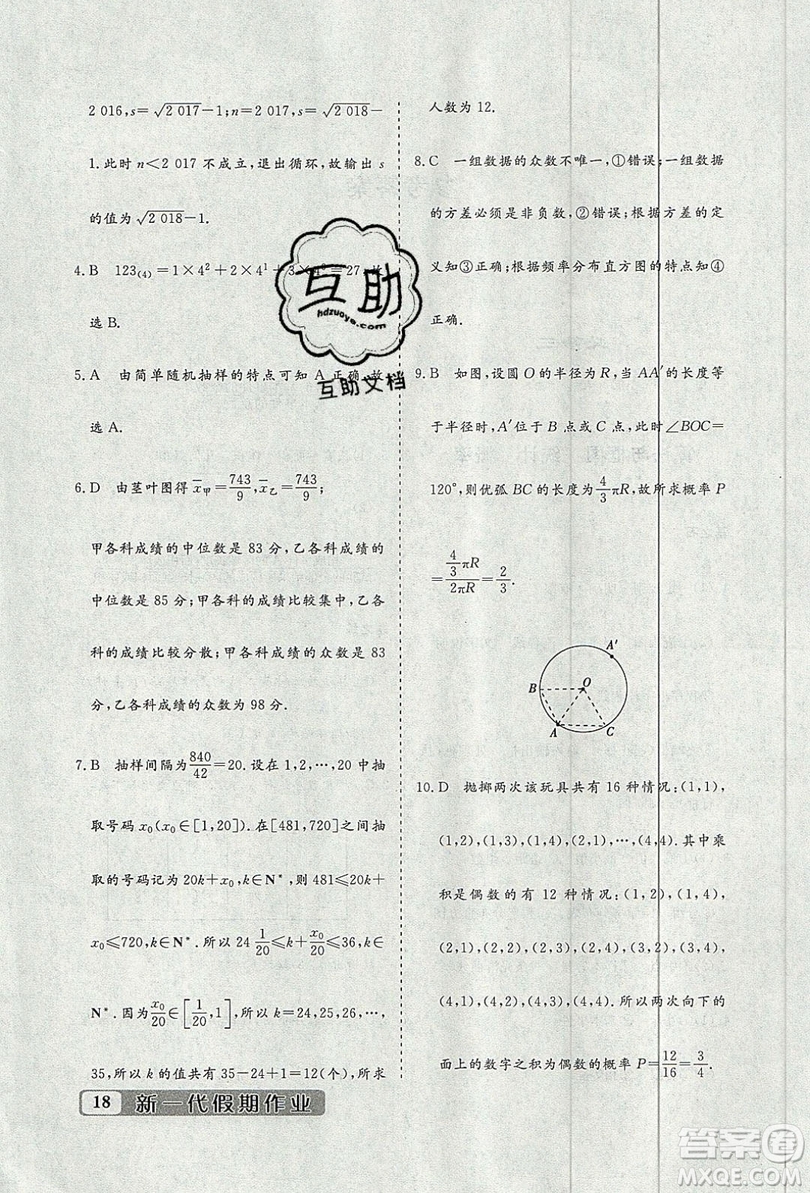 2 016,s=√(2 017)−1;n=2 017,s=√(2 018)−
1.此时 n<2 017 不成立,退出循环,故输出 s
的值为√(2 018)−1.
4.B 123₍₄₎=1×4²+2×4¹+3×4⁰=27.故
选 B.
5.A 由简单随机抽样的特点可知 A 正确.故
选 A.
6.D 由茎叶图得 x̄甲=743/9,x̄乙=743/9;
甲各科成绩的中位数是 83 分,乙各科成绩的
中位数是 85 分;甲各科的成绩比较集中,乙各
科的成绩比较分散;甲各科成绩的众数是 83
分,乙各科成绩的众数为 98 分.
7.B 抽样间隔为840/42=20.设在 1,2,…,20 中抽
取号码 x₀(x₀∈[1,20]).在[481,720]之间抽
取的号码记为 20k+x₀,k∈N*,则 481≤20k+
x₀≤720,k∈N*.所以 24 1/20≤k+x₀/20≤36,k∈
N*.因为x₀/20∈[1/20,1],所以 k=24,25,26,…,
35,所以 k 的值共有 35−24+1=12(个),所求
人数为 12.
8.C 一组数据的众数不唯一,①错误;一组数据
的方差必须是非负数,②错误;根据方差的定
义知③正确;根据频率分布直方图的特点知④
正确.
9.B 如图,设圆 O 的半径为 R,当 AA′的长度等
于半径时,A′位于 B 点或 C 点,此时∠BOC=
120°,则优弧 BC 的长度为4/3πR,故所求概率 P
=(4/3πR)/(2πR)=2/3.
A′
B
O
A
C
10.D 抛掷两次该玩具共有 16 种情况:(1,1),
(1,2),(1,3),(1,4),(2,1),…,(4,4).其中乘
积是偶数的有 12 种情况:(1,2),(1,4),
(2,1),(2,2),(2,3),(2,4),(3,2),(3,4),
(4,1),(4,2),(4,3),(4,4).所以两次向下的
面上的数字之积为偶数的概率 P=12/16=3/4.
18 新一代假期作业
互助
hdzuoye.com
互助文档
答案圈
MXQE.COM